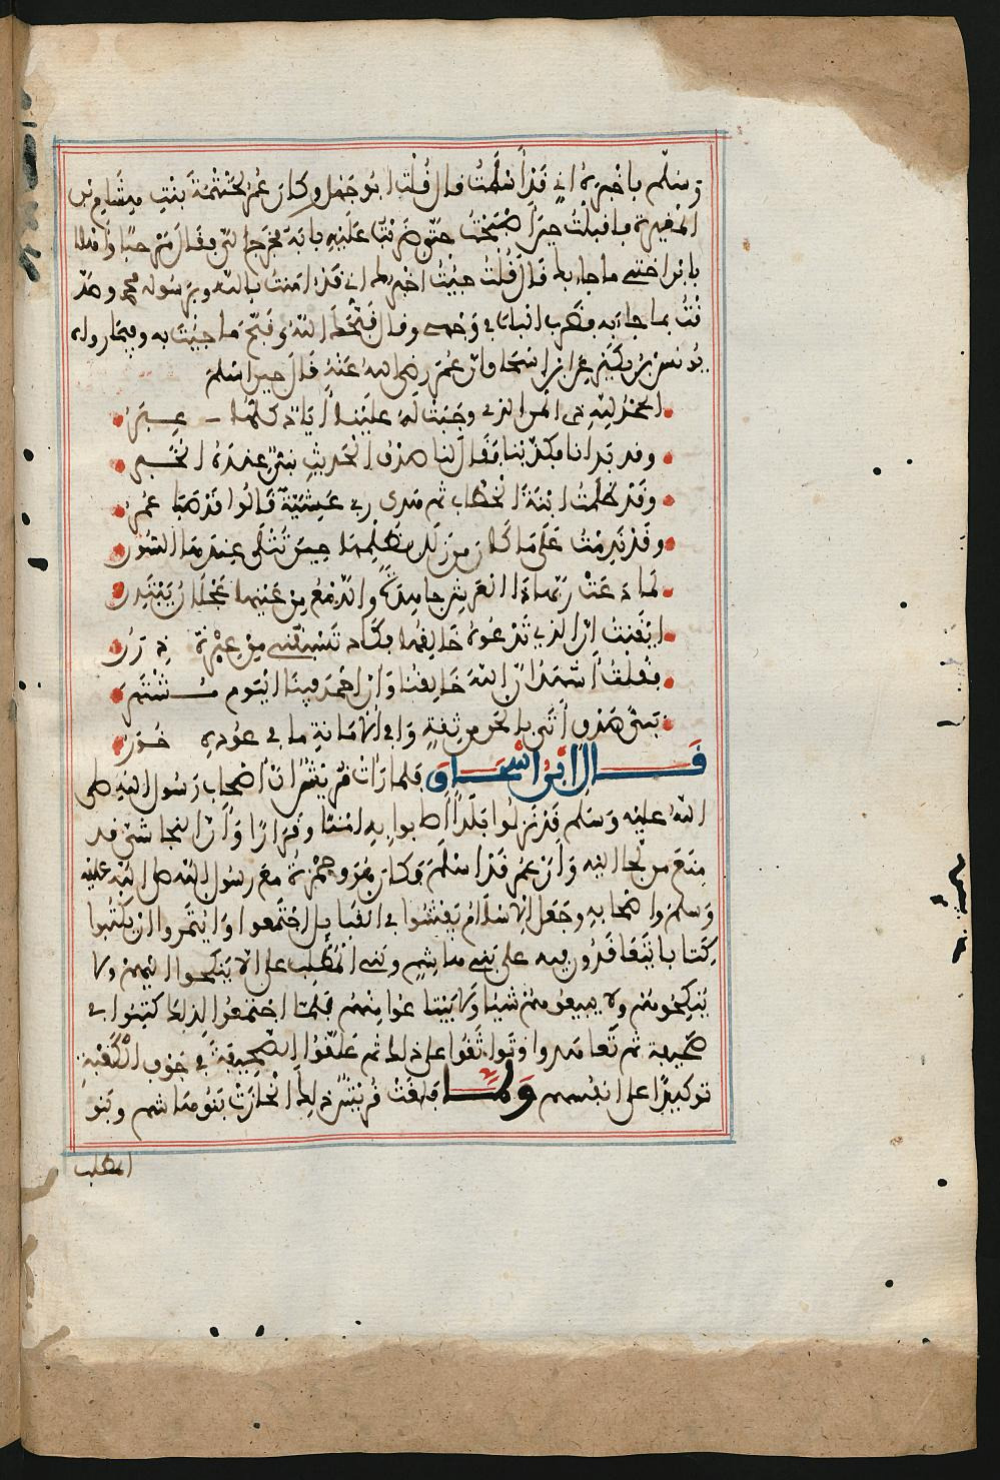 وسلم باخبره اني قد اسلمت قال قلت ابو جهل وكان عمر لحنتمة بنت هشام بن
المغيرة فاقبلت حين اصبحت حتى ضربت عليه بابه فخرج الي فقال مرحبا واهلا
يابن اختي ما جاء بك قال قلت جيت اخبرك اني قد امنت بالله وبرسوله محمد وصد
قت بما جاء به فضرب الباب في وجهي وقال قبحك الله وقبح ما جيت به وفيما رواه
يونس بن بكير عن ابن اسحاق ان عمر رضي الله عنه قال حين اسلم
الحمد لله ذي المن الذي وجبت له علينا اياد كلها عبر
وقد بدانا فكذبنا فقال لنا صدق الحديث نبي عنده الخبر
وقد ظلمت ابنة الخطاب ثم هدى ربي عشية قالوا قد صبا عمر
وقد ندمت على ما كان من زلل بظلمها حين تتلى عندها السور
لما دعت ربها ذا العرش جاهدة والدمع من عينها عجلان يبتدر
ايقنت ان الذي تدعوه خالقها فكاد تسبقني من عبرة درر
فقلت اشهد ان الله خالقنا وان احمد فينا اليوم مشتهر
نبي صدق اتى بالحق من ثقة وافي الامانة ما في عوده خور
قال ابن اسحاق فلما رات قريش ان اصحاب رسول الله صلى
الله عليه وسلم قد نزلوا بلدا اصابوا به امنا وقرارا وان النجاشي قد
منع من لجا اليه وان عمر قد اسلم فكان هو وحمزة مع رسول الله صلى الله عليه
وسلم واصحابه وجعل الاسلام يفشوا في القبايل اجتمعوا وايتمروا ان يكتبوا
كتابا يتعاقدون فيه على بني هاشم وبني المطلب على الا ينكحوا اليهم ولا
ينكحوهم ولا يبيعوهم شيا ولا يبتاعوا منهم فلما اجتمعوا لذلك كتبوا في
صحيفة ثم تعاهدوا وتواثقوا على ذلك ثم علقوا الصحيفة في جوف الكعبة
توكيدا على انفسهم ولما فعلت قريش ذلك انحازت بنو هاشم وبنو
المطلب